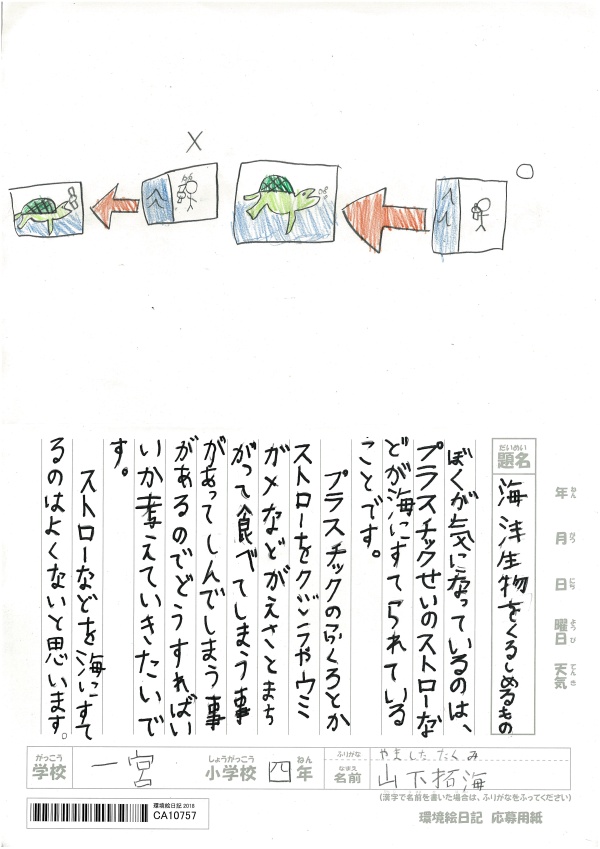 だいめい
題名
海洋生物をくるしめるもの
年 ねん
月 がつ
日 にち
曜日 ようび
天気 てんき
ぼくが気になっているのは、
プラスチックせいのストローな
どが海にすてられている
ことです。
プラスチックのふくろとか
ストローをクジラやウミ
ガメなどがえさとまち
がって食べてしまう事
があってしんでしまう事
があるのでどうすればい
いか考えていきたいで
す。
ストローなどを海にすて
るのはよくないと思います。
がっこう
学校
一宮
しょうがっこう
小学校
四
ねん
年
ふりがな
やました たくみ
なまえ
名前
山下拓海
(漢字で名前を書いた場合は、ふりがなをふってください)
環境絵日記2018
CA10757
環境絵日記 応募用紙